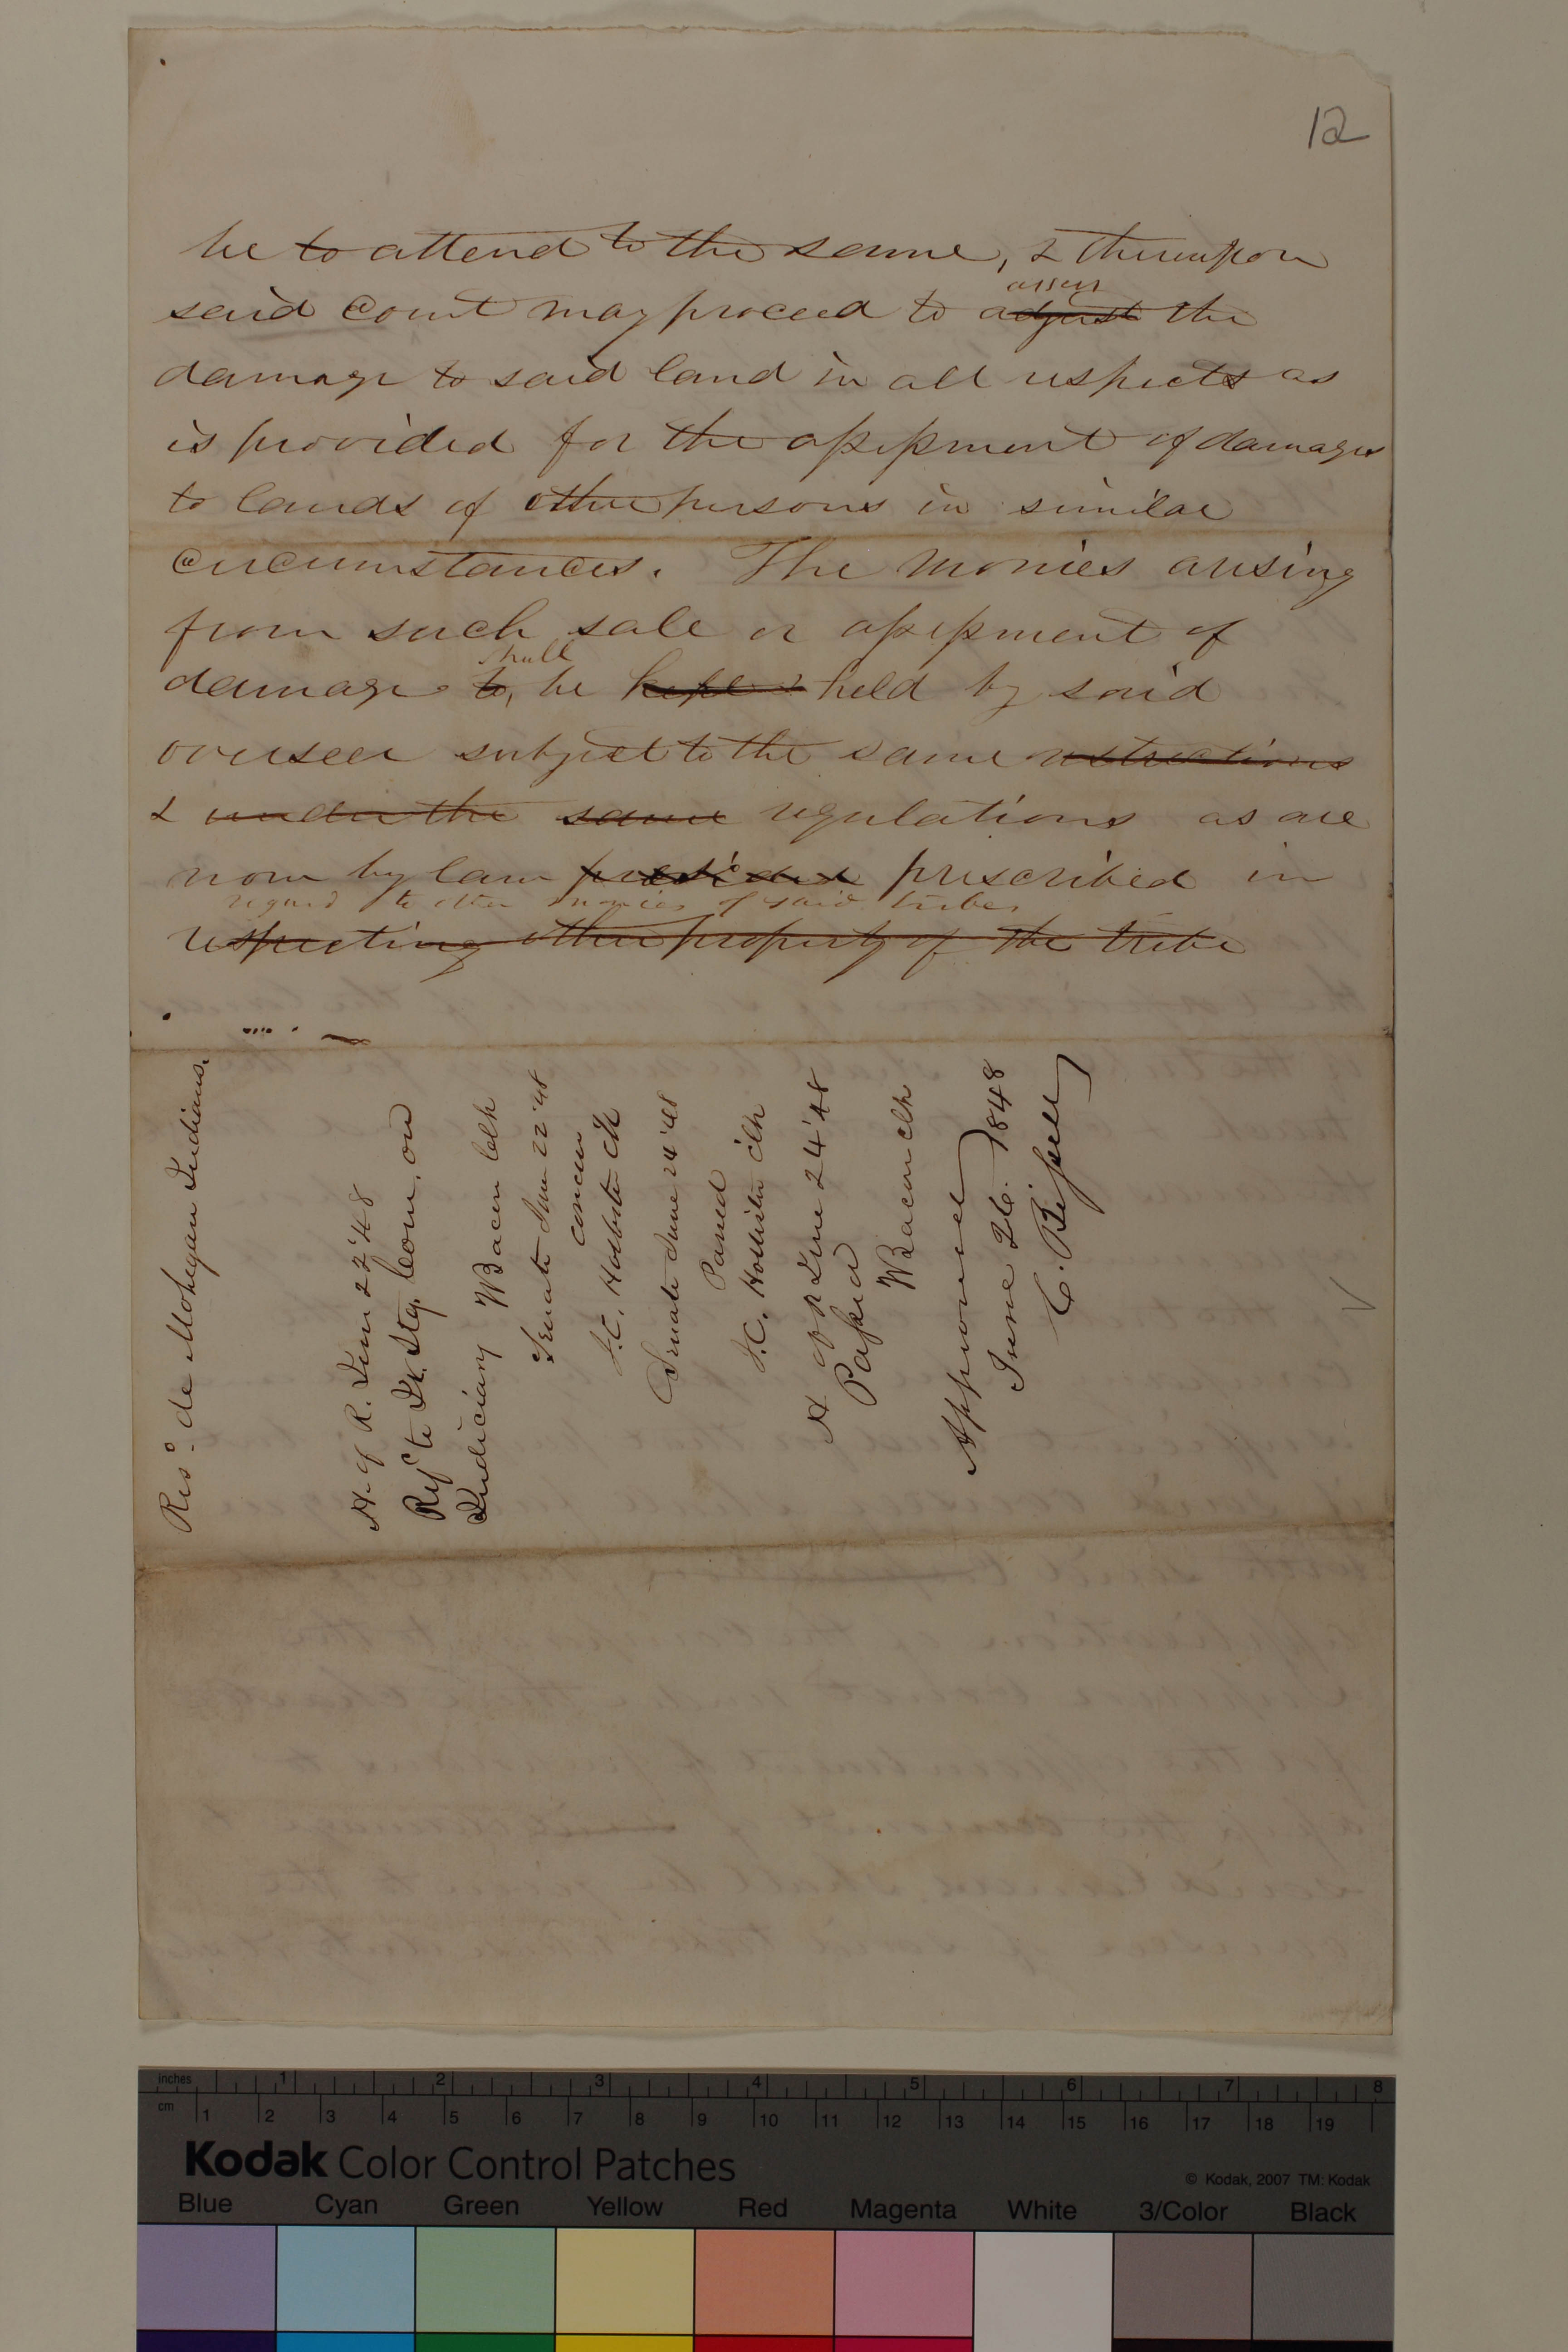 12
be to attend to the same, & thereupon
assess
said court may proceed to adjust the
damage to said land in all respects as
is provided for the assessment of damages
to lands of other persons in similar
circumstances. The monies arising
from such sale or assessment of
shall
damage to, be kept & held by said
overseer subject to the same restrictions
& under the same regulations as are
now by law provided prescribed in
regard to other monies of said tribe
respecting other property of the tribe
Reso. de Mohegan Indians.
H. of R. June 22 '48
Refd to Jt. Stg. Com. on
Judiciary W Bacon Clk
Senate June 22 '48
concur
J.C. Hollister Clk
Senate June 24 '48
Passed
J.C. Hollister Clk
H of R June 24 '48
Passed
W Bacon Clk
Approved
June 26. 1848
C. Bissell
inches 1 2 3 4 5 6 7 8
cm 1 2 3 4 5 6 7 8 9 10 11 12 13 14 15 16 17 18 19
Kodak Color Control Patches
© Kodak, 2007 TM: Kodak
Blue Cyan Green Yellow Red Magenta White 3/Color Black